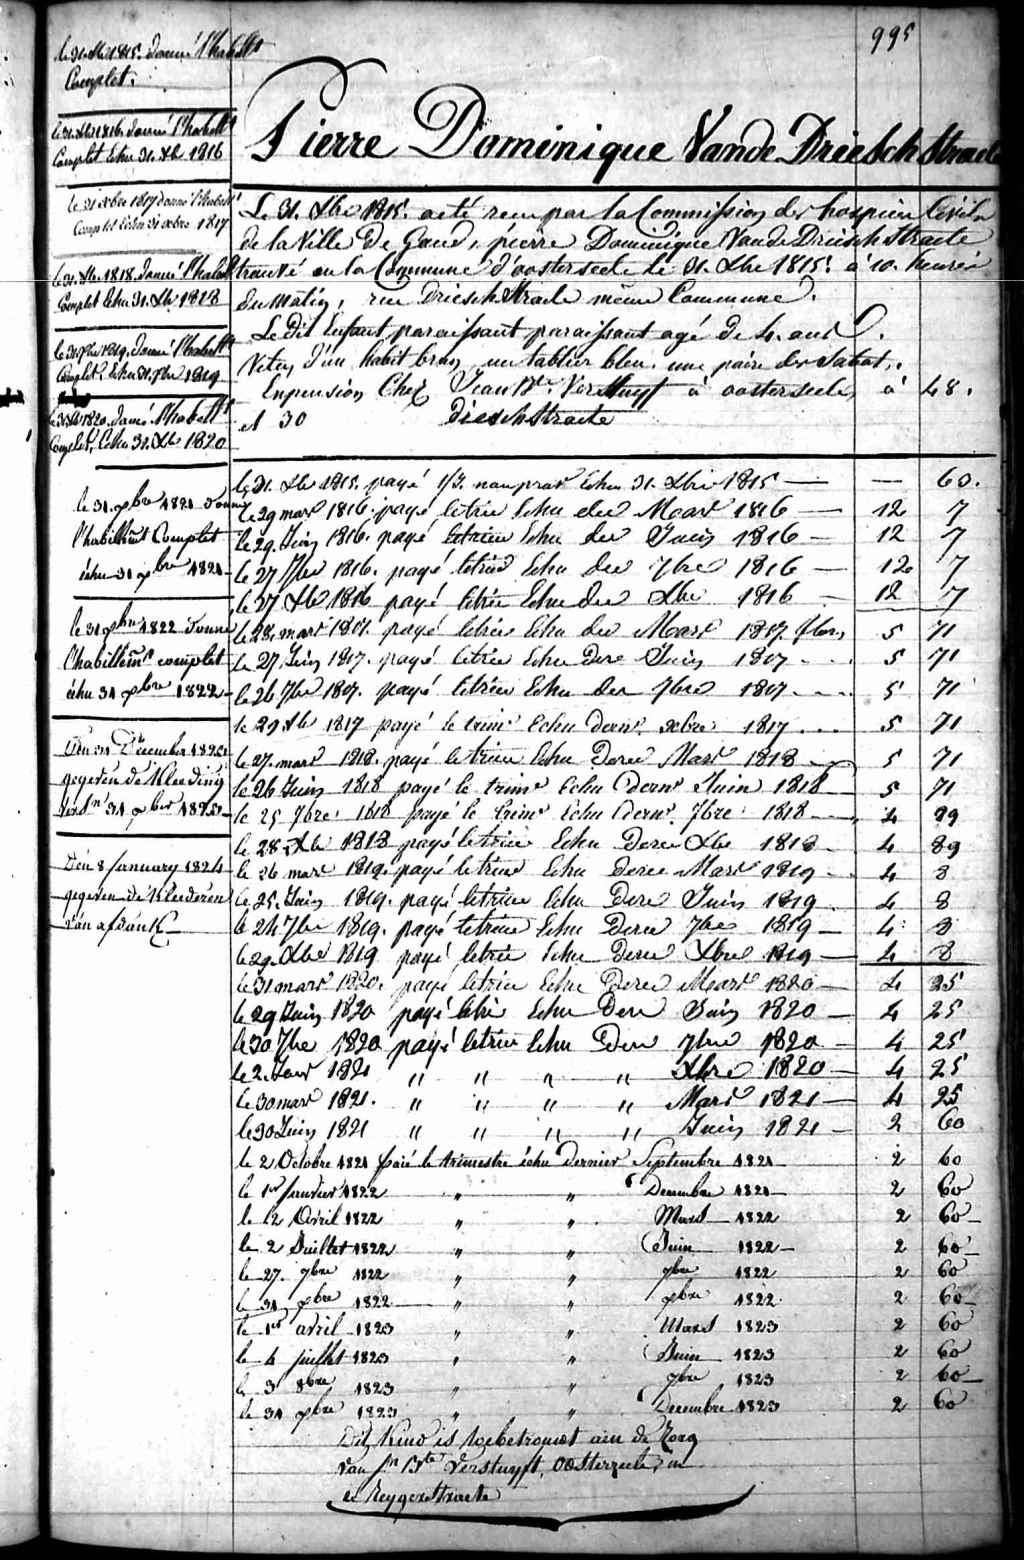 995
le 31 Xbre 1815. donné l'habillt
Complet.
le 31. Xbre 1816. donné l'habillt
Complet Echu 31. Xbre 1816
le 31 xbre 1817 donné l'habillt
Complet Echu 31 xbre 1817
le 31. Xbre 1818. donné l'habillt
Complet Echu 31. Xbre 1818
le 31 Xbre 1819. donné l'habillt
Complet, Echu 31. Xbre 1819
le 31 Xbre 1820. donné l'habillt
Complet, Echu 31. Xbre 1820
le 31 xbre 1821 donné
l'habillemt Complet
échu 31 xbre 1821
le 31 xbre 1822 donné
l'habillemt complet
échu 31 xbre 1822
Den 31 December 1823
gegeven de Kleeding
31 xber 1823
Den 8 January 1824
gegeven de Kleederen
van afdank
Pierre Dominique Vande Driesch Straete
Le 31. Xbre 1815. acté recu par la Commission des hospices Civils
de la Ville de Gand, pierre Dominique Vande Driesch Straete
trouvé en la Commune d'oosterseele le 31. Xbre 1815. à 10. heures
du matin, rue Driesch Straete même Commune.
Le dit Enfant paraissant paraissant agé de 4. ans
Vetu d'un habit brun, un tablier bleu. une paire de Sabots.
En pension Chez Jean Bte. Verstuyft à oosterseele, à 48.
et 30 Driesch Straete
le 31. Xbre 1815. payé Echu 31. Xbre 1815 — — 60.
le 29 mars 1816. payé letrim Echu der Mars 1816 — 12 7
le 29. Juin 1816. payé letrim Echu der Juin 1816 — 12 7
le 27 7bre 1816. payé letrim Echu der 7bre 1816 — 12 7
le 27 Xbre 1816 payé letrim Echu der Xbre 1816 — 12 7
le 28. mars 1817. payé letrim Echu der Mars 1817 flor, 5 71
le 27 Juin 1817. payé letrim Echu Dere Juin 1817 . . . 5 71
le 26 7bre 1817. payé letrim Echu der 7bre 1817 . . . 5 71
le 29 Xbre 1817 payé le trimr Echu dernr xbre 1817 . . . 5 71
le 27. mars 1818. payé letrim Echu Dere Mars 1818 — 5 71
le 26 Juin 1818 payé le trimr Echu dernr Juin 1818 — 5 71
le 25 7bre 1818 payé le trimr Echu dernr 7bre 1818 — 4 89
le 28 Xbre 1818 payé letrim Echu Dere Xbre 1818 — 4 89
le 26 mars 1819. payé letrim Echu Dere Mars 1819 — 4 8
le 25. Juin 1819. payé letrim Echu Dere Juin 1819 — 4 8
le 24 7bre 1819. payé letrim Echu Dere 7bre 1819 — 4 8
le 29. Xbre 1819 payé letrim Echu Dere Xbre 1819 — 4 8
le 31 mars 1820. payé letrim Echu Dere Mars 1820 — 4 25
le 29 Juin 1820 payé letrim Echu Dere Juin 1820 — 4 25
le 30 7bre 1820 payé letrim Echu Dere 7bre 1820 — 4 25
le 2. Janv 1821 " " " " Xbre 1820 — 4 25
le 30 mars 1821. " " " " Mars 1821 — 4 25
le 30 Juin 1821 " " " " Juin 1821 — 2 60
le 2 Octobre 1821 paié le trimestre échu dernier Septembre 1821 — 2 60
le 1er Janvier 1822 " " Decembre 1821 — 2 60
le 2 Avril 1822 " " Mars 1822 2 60
le 2 Juillet 1822 " " Juin 1822 — 2 60
le 27. 7bre 1822 " " 7bre 1822 2 60
le 31 xbre 1822 " " xbre 1822 2 60
le 1er avril 1823 " " Mars 1823 2 60
le 4 juillet 1823 " " Juin 1823 2 60
le 3 8bre 1823 " " 7bre 1823 2 60
le 31 xbre 1823 " " Decembre 1823 2 60
Dit Kind is toebetrouwt aen de Zorg
van Jn Bte Verstuyft, Oosterzeele, in
de Reyger Straete